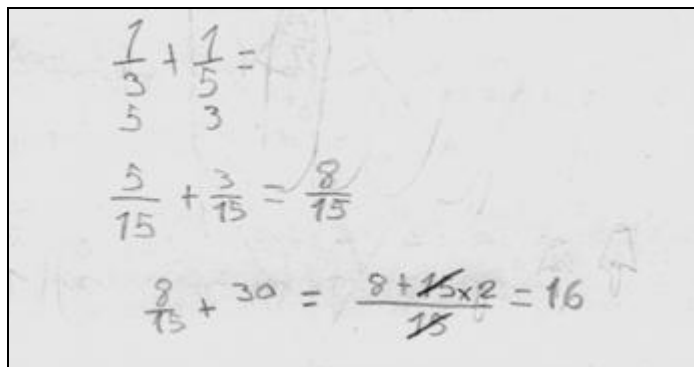 1/3 + 1/5 =
5 3
5/15 + 3/15 = 8/15
8/15 + 30 = (8 + 15 x 2)/15 = 16